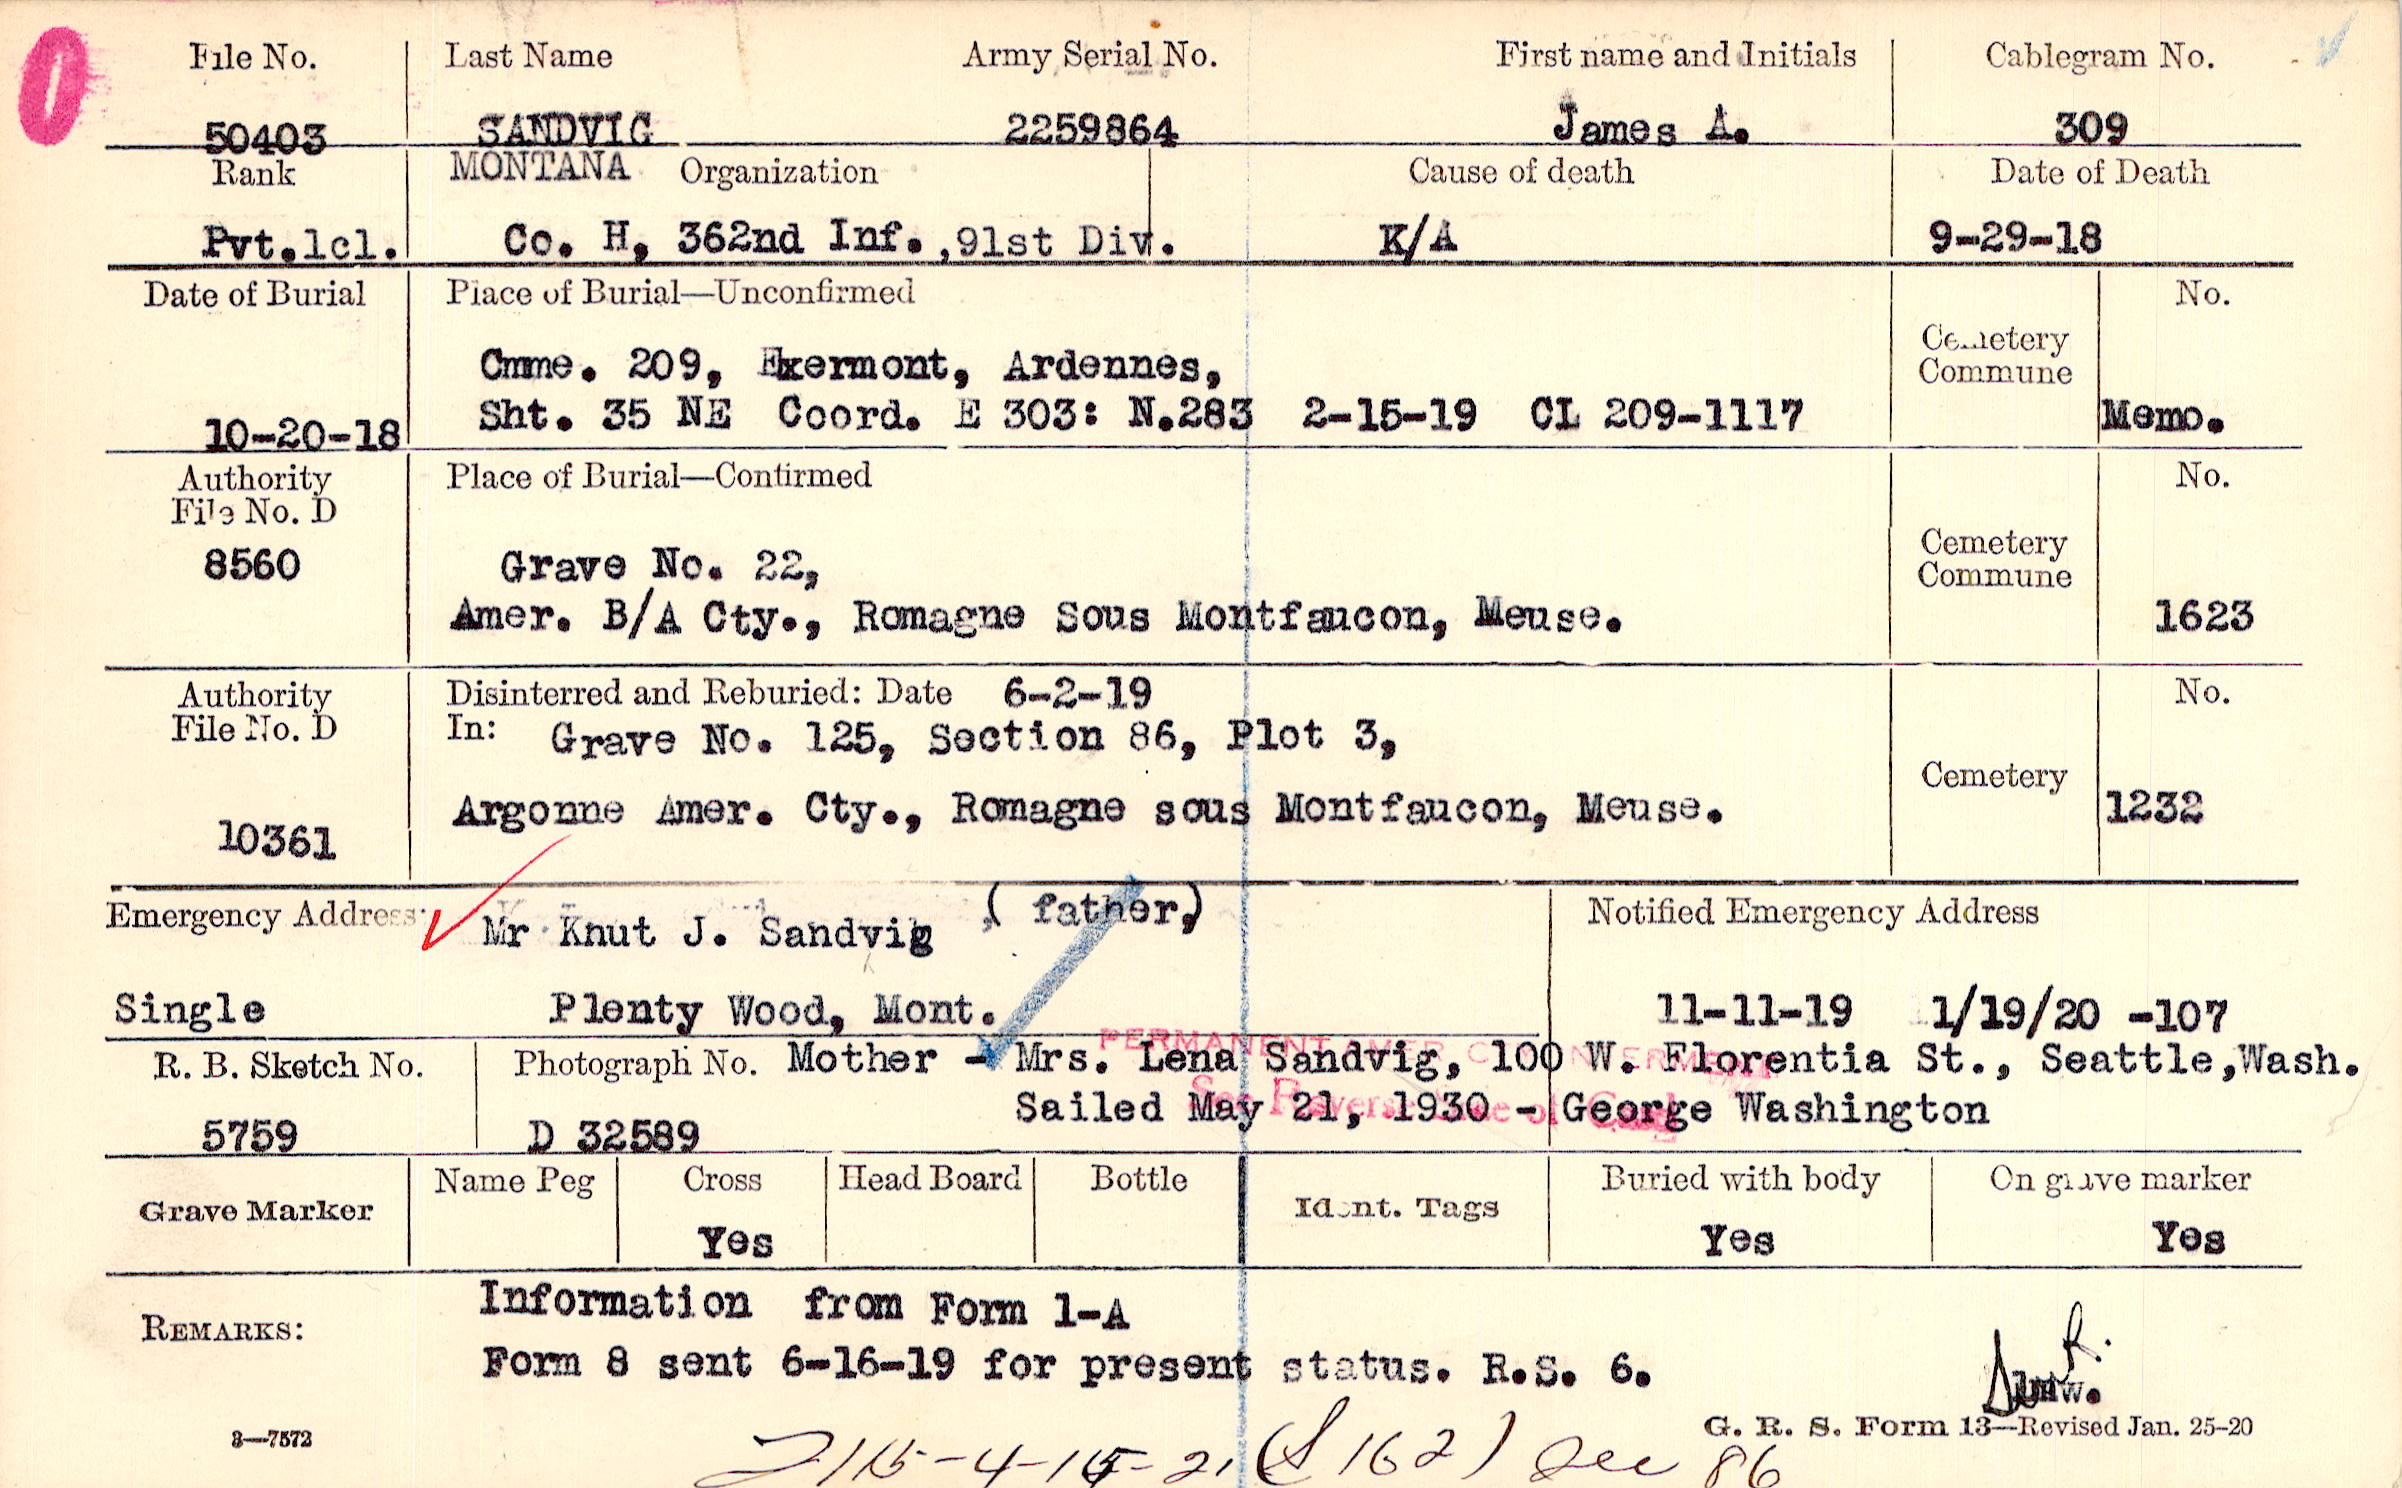 File No. Last Name Army Serial No. First name and Initials Cablegram No.
50403 SANDVIG 2259864 James A. 309
Rank MONTANA Organization Cause of death Date of Death
Pvt.1cl. Co. H, 362nd Inf.,91st Div. K/A 9-29-18
Date of Burial Place of Burial—Unconfirmed No.
Cemetery
Commune
Cmme. 209, Exermont, Ardennes,
10-20-18 Sht. 35 NE Coord. E 303: N.283 2-15-19 CL 209-1117 Memo.
Authority Place of Burial—Confirmed No.
File No. D
8560 Grave No. 22, Cemetery
Commune
Amer. B/A Cty., Romagne Sous Montfaucon, Meuse. 1623
Authority Disinterred and Reburied: Date 6-2-19 No.
File No. D In: Grave No. 125, Section 86, Plot 3,
Cemetery
10361 Argonne Amer. Cty., Romagne sous Montfaucon, Meuse. 1232
Emergency Address: Mr Knut J. Sandvig ( father,) Notified Emergency Address
Single Plenty Wood, Mont. 11-11-19 1/19/20 -107
PERMANENT
R. B. Sketch No. Photograph No. Mother - Mrs. Lena Sandvig, 100 W. Florentia St., Seattle,Wash.
Sailed May 21, 1930 - George Washington
5759 D 32589
Grave Marker Name Peg Cross Head Board Bottle Ident. Tags Buried with body On grave marker
Yes Yes Yes
REMARKS: Information from Form 1-A
Form 8 sent 6-16-19 for present status. R.S. 6.
3—7572 G. R. S. Form 13—Revised Jan. 25-20
(S 162) Sec 86